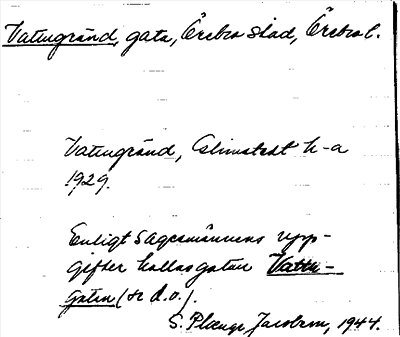 Vattugränd, gata, Örebro stad, Örebro l.
Vattugränd, Almstedt h-a
1929.
Enligt sagesmännens upp-
gifter kallas gatan Vattu-
gatan (se d.o.).
S. Plænge Jacobson, 1944.